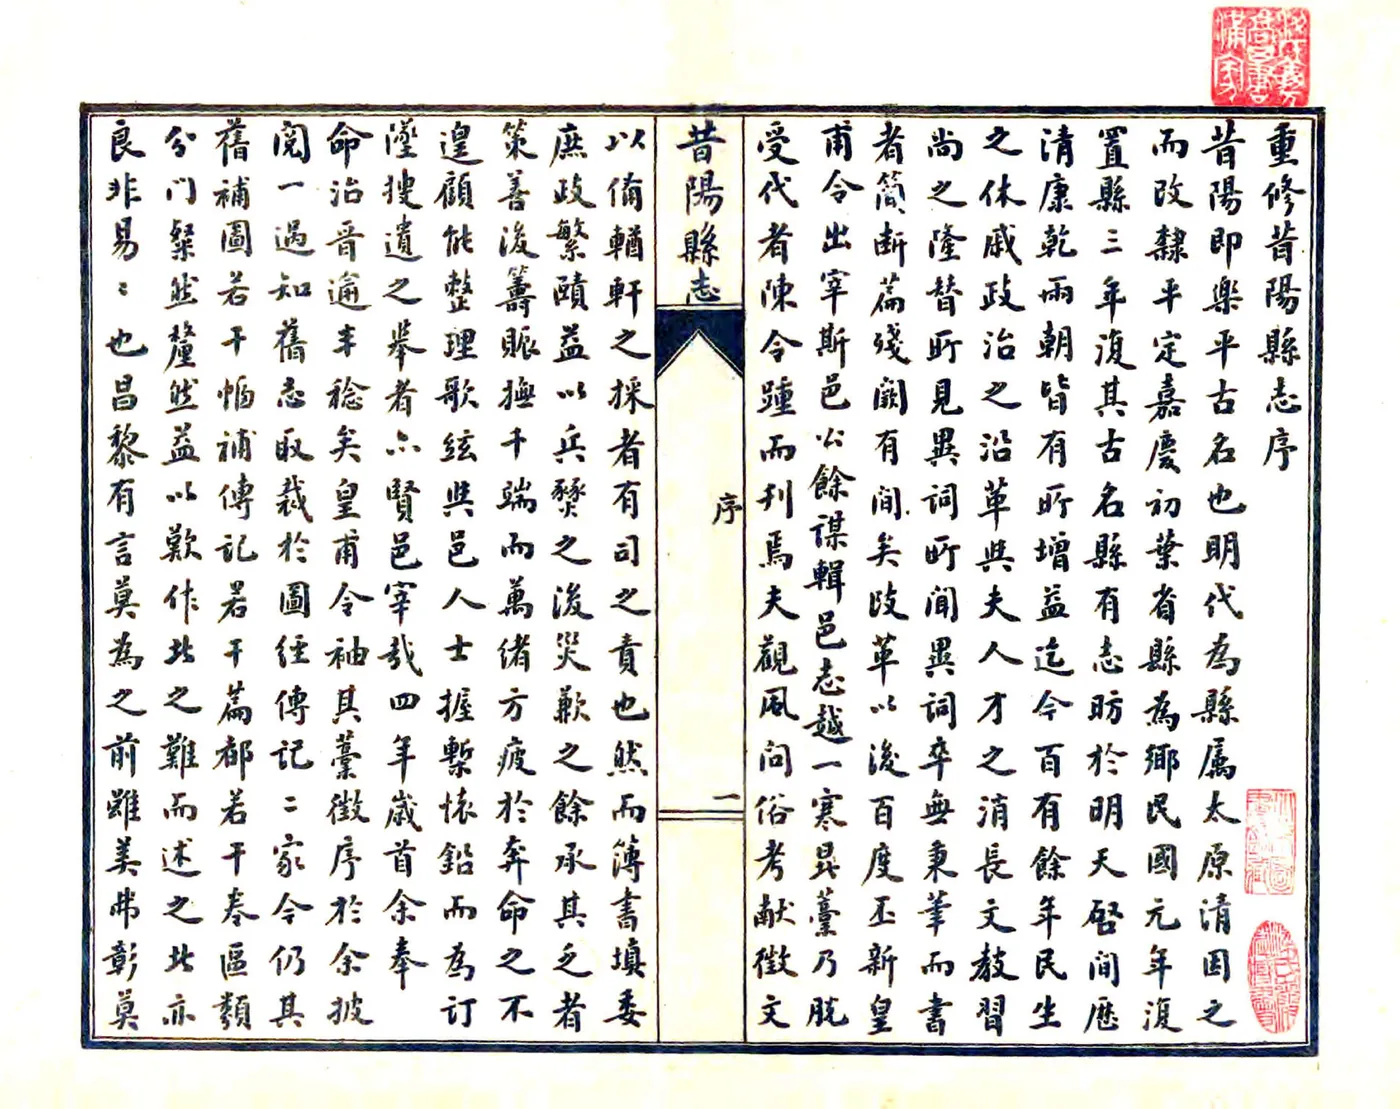 重修昔陽縣志序
昔陽即樂平古名也明代為縣属太原清因之
而改隸平定嘉慶初葉省縣為鄉民國元年復
置縣三年復其古名縣有志昉於明天啓間歷
清康乾兩朝皆有所增益迄今百有餘年民生
之休戚政治之沿革與夫人才之消長文教習
尚之隆替所見異詞所聞異詞卒無秉筆而書
者簡断篇殘闕有间矣改革以後百度丕新皇
甫令出宰斯邑公餘謀輯邑志越一寒㫤藁乃脱
受代者陳令踵而刊焉夫觀風问俗考献徵文
昔陽縣志
序
一
以俻輶軒之採者有司之責也然而簿書填委
庶政繁賾益以兵燹之後災歉之餘承其乏者
策善後籌賑撫千端而萬绪方疲於奔命之不
遑顧能整理歌絃與邑人士握槧懐鉛而為订
墜搜遺之舉者亦賢邑宰哉四年歲首余奉
命治晋逾丰稔矣皇甫令袖其藁徵序於余披
阅一過知舊志取裁於圖經傳記二家今仍其
舊補圖若干幅補傳記若干篇都若干卷區類
分門粲然釐然益以歎作此之難而述之此亦
良非易〻也昌黎有言莫為之前雖美弗彰莫